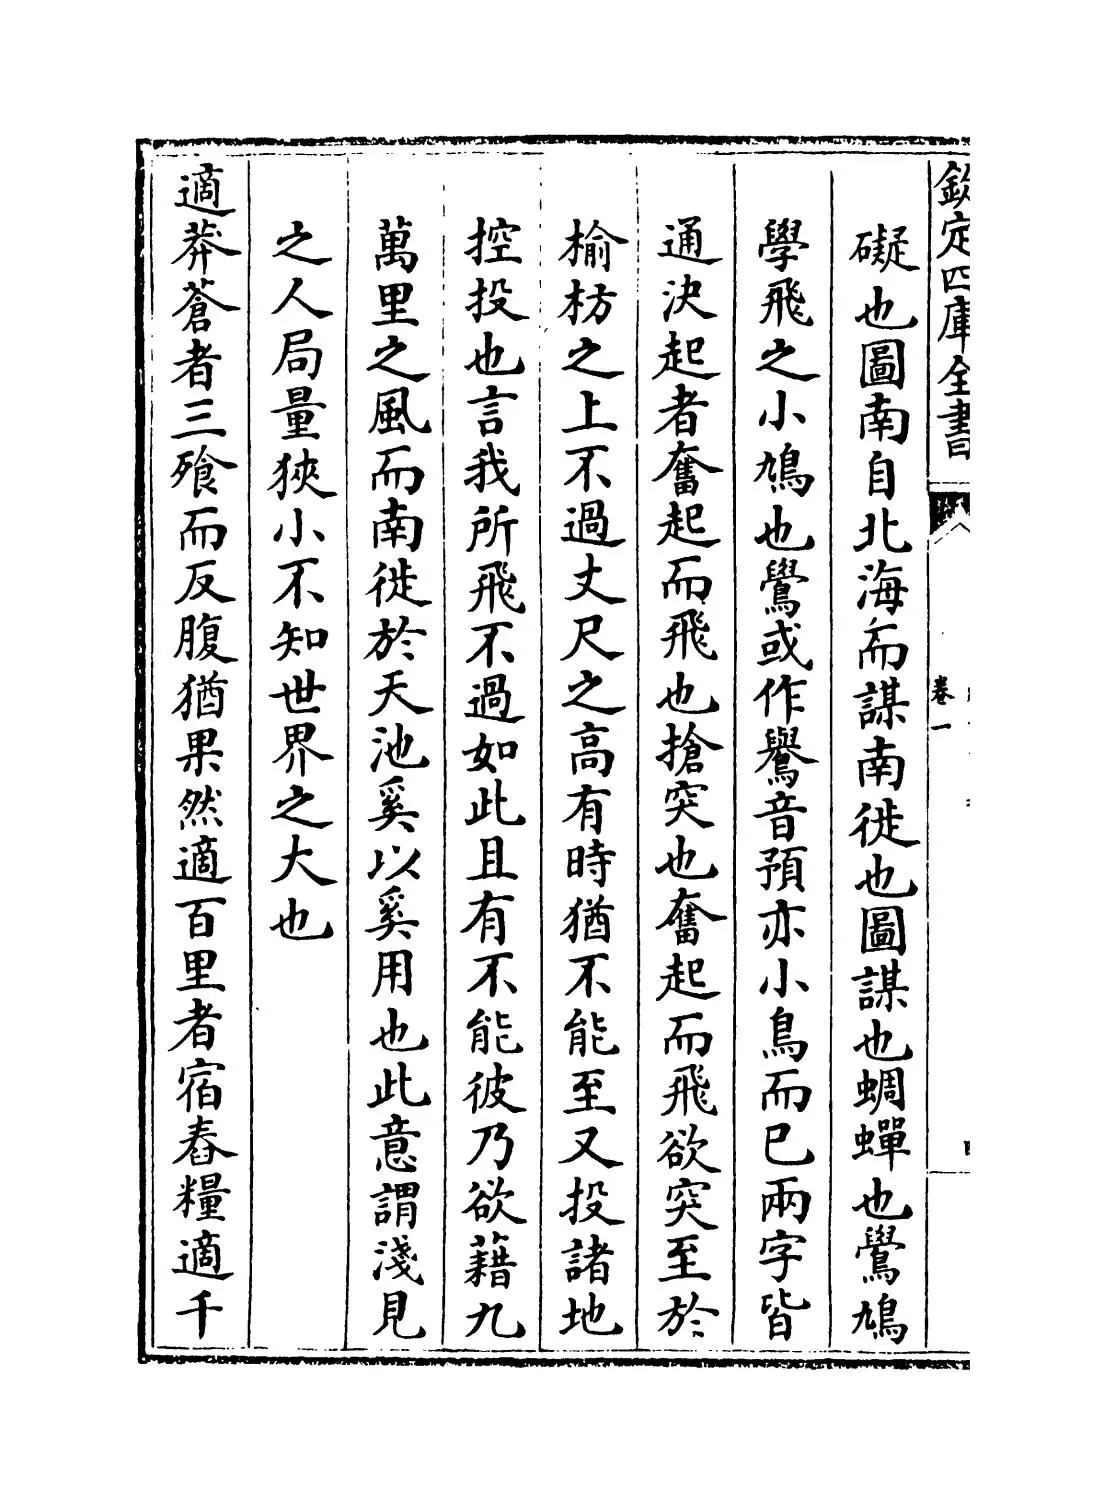 欽定四庫全書
卷一
礙也圖南自北海而謀南徙也圖謀也蜩蟬也鷽鳩
學飛之小鳩也鷽或作鸒音預亦小鳥而已兩字皆
通決起者奮起而飛也搶突也奮起而飛欲突至於
榆枋之上不過丈尺之高有時猶不能至又投諸地
控投也言我所飛不過如此且有不能彼乃欲藉九
萬里之風而南徙於天池奚以奚用也此意謂淺見
之人局量狹小不知世界之大也
適莽蒼者三飱而反腹猶果然適百里者宿舂糧適千